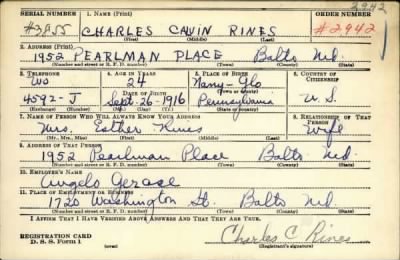 2942
SERIAL NUMBER 1. NAME (Print) ORDER NUMBER
#3855 CHARLES CAVIN RINES #2942
(First) (Middle) (Last)
2. ADDRESS (Print)
1952 PEARLMAN PLACE Balto Md.
(Number and street or R. F. D. number) (Town) (County) (State)
3. TELEPHONE 4. AGE IN YEARS 5. PLACE OF BIRTH 6. COUNTRY OF CITIZENSHIP
Wo 24 Nanty-Glo
DATE OF BIRTH
4592-J Sept. 26-1916 Pennsylvania U.S.
(Exchange) (Number) (Mo.) (Day) (Yr.) (State or country)
7. NAME OF PERSON WHO WILL ALWAYS KNOW YOUR ADDRESS 8. RELATIONSHIP OF THAT PERSON
Mrs. Esther Rines Wife
(Mr., Mrs., Miss) (First) (Middle) (Last)
9. ADDRESS OF THAT PERSON
1952 Pearlman Place Balto Md.
(Number and street or R. F. D. number) (Town) (County) (State)
10. EMPLOYER'S NAME
Angelo Gerace
11. PLACE OF EMPLOYMENT OR BUSINESS
1720 Washington St. Balto Md
(Number and street or R. F. D. number) (Town) (County) (State)
I AFFIRM THAT I HAVE VERIFIED ABOVE ANSWERS AND THAT THEY ARE TRUE.
REGISTRATION CARD
D. S. S. Form 1 (over) Charles C Rines
(Registrant's signature)